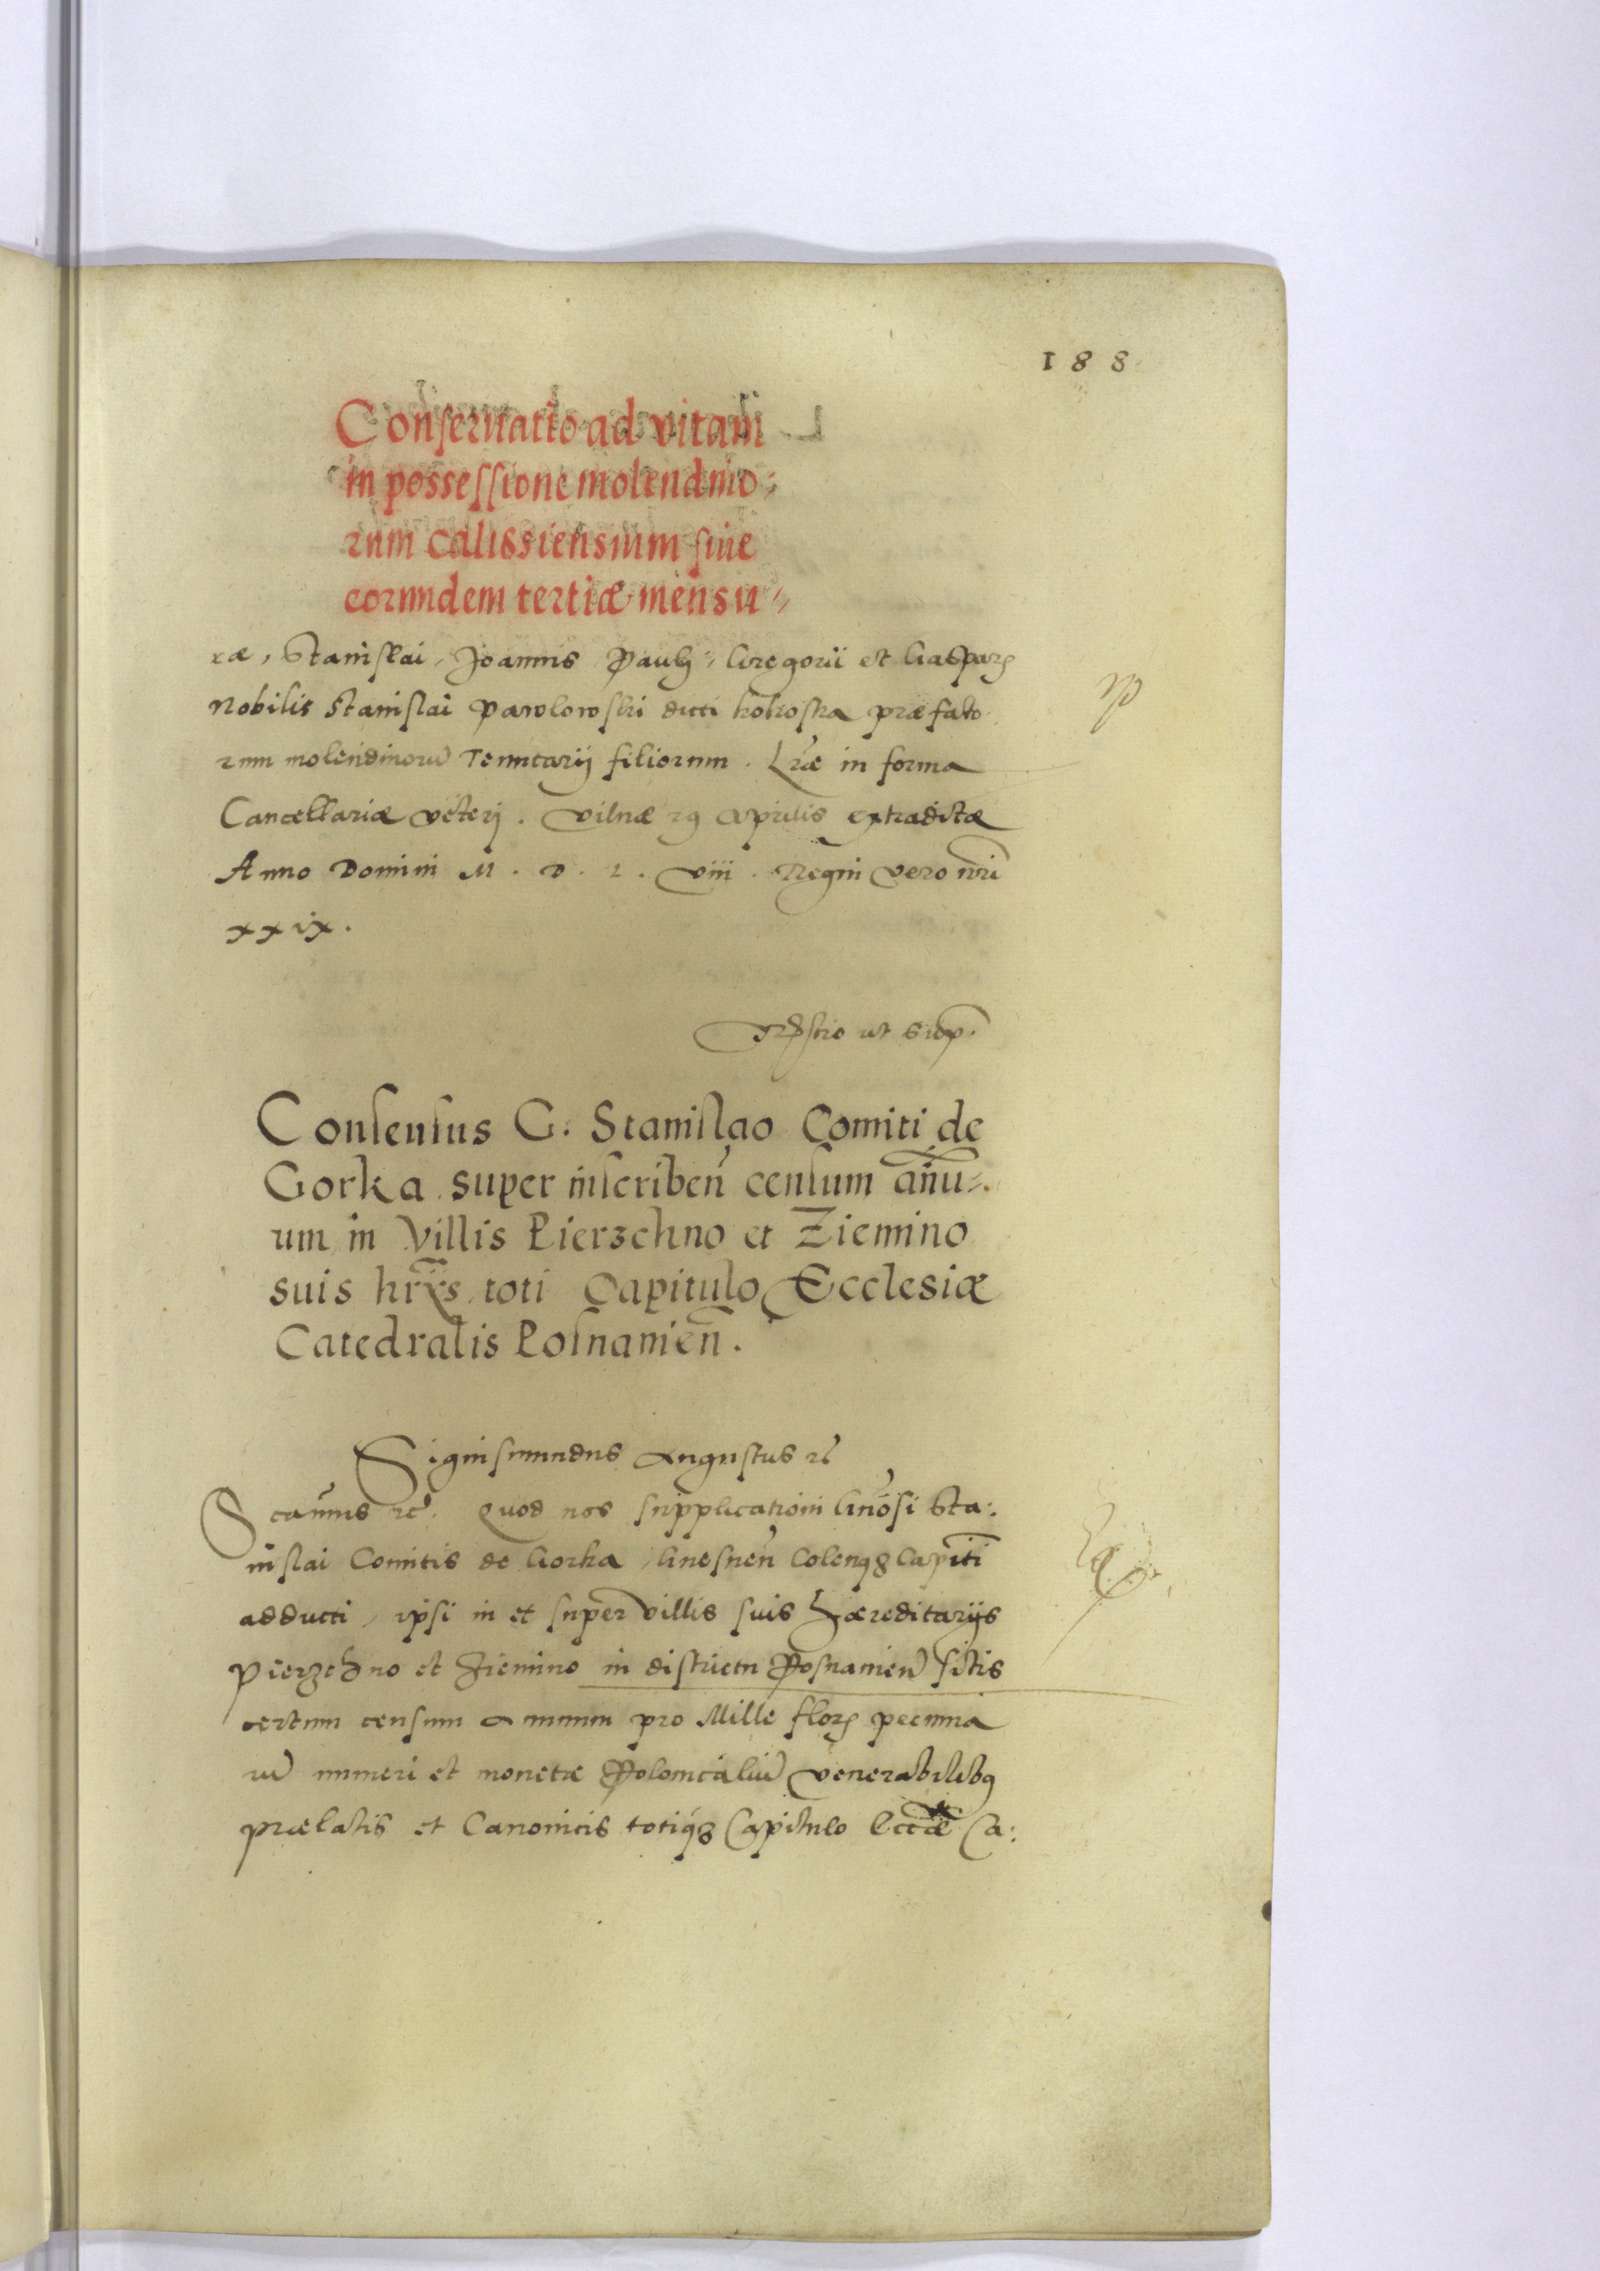 188
Conseruatio ad vitam
in possessione molendino:
rum calissiensium siue
eorumdem tertiæ mensu„
ræ, Stanislai, Joannis Pauli, Gregorii et Gaspar
Nobilis Stanislai Pawlowski dicti kokoska præfato
rum molendinorũ Tenutarij filiorum. Lræ in forma
Cancellariæ veteri. Vilnæ 29 Aprilis extraditæ
Anno Domini M. D. L. viii. Regni vero nri
xxix.
ut
Consensus G. Stanislao Comiti de
Gorka super inscribeñ censum añu„
um in Villis Pierzchno et Ziemino
suis hrijs toti Capitulo Ecclesiæ
Catedralis Posnanieñ.
Sigismundus Augustus rc
Quod nos supplicationi Gnosi Sta:
nislai Comitis de Gorka, Gnesneñ Colenqȝ Capiti
adducti, ipsi in et super villis suis hæreditarijs
Pierzchno et Ziemino in districtu Posnanieñ sitis
certum censum annuum pro Mille flor pecunia
rũ numeri et monetæ Polonicaliũ venerabilibꝫ
prælatis et Canonicis totiqȝ Capitulo Eccæ Ca: